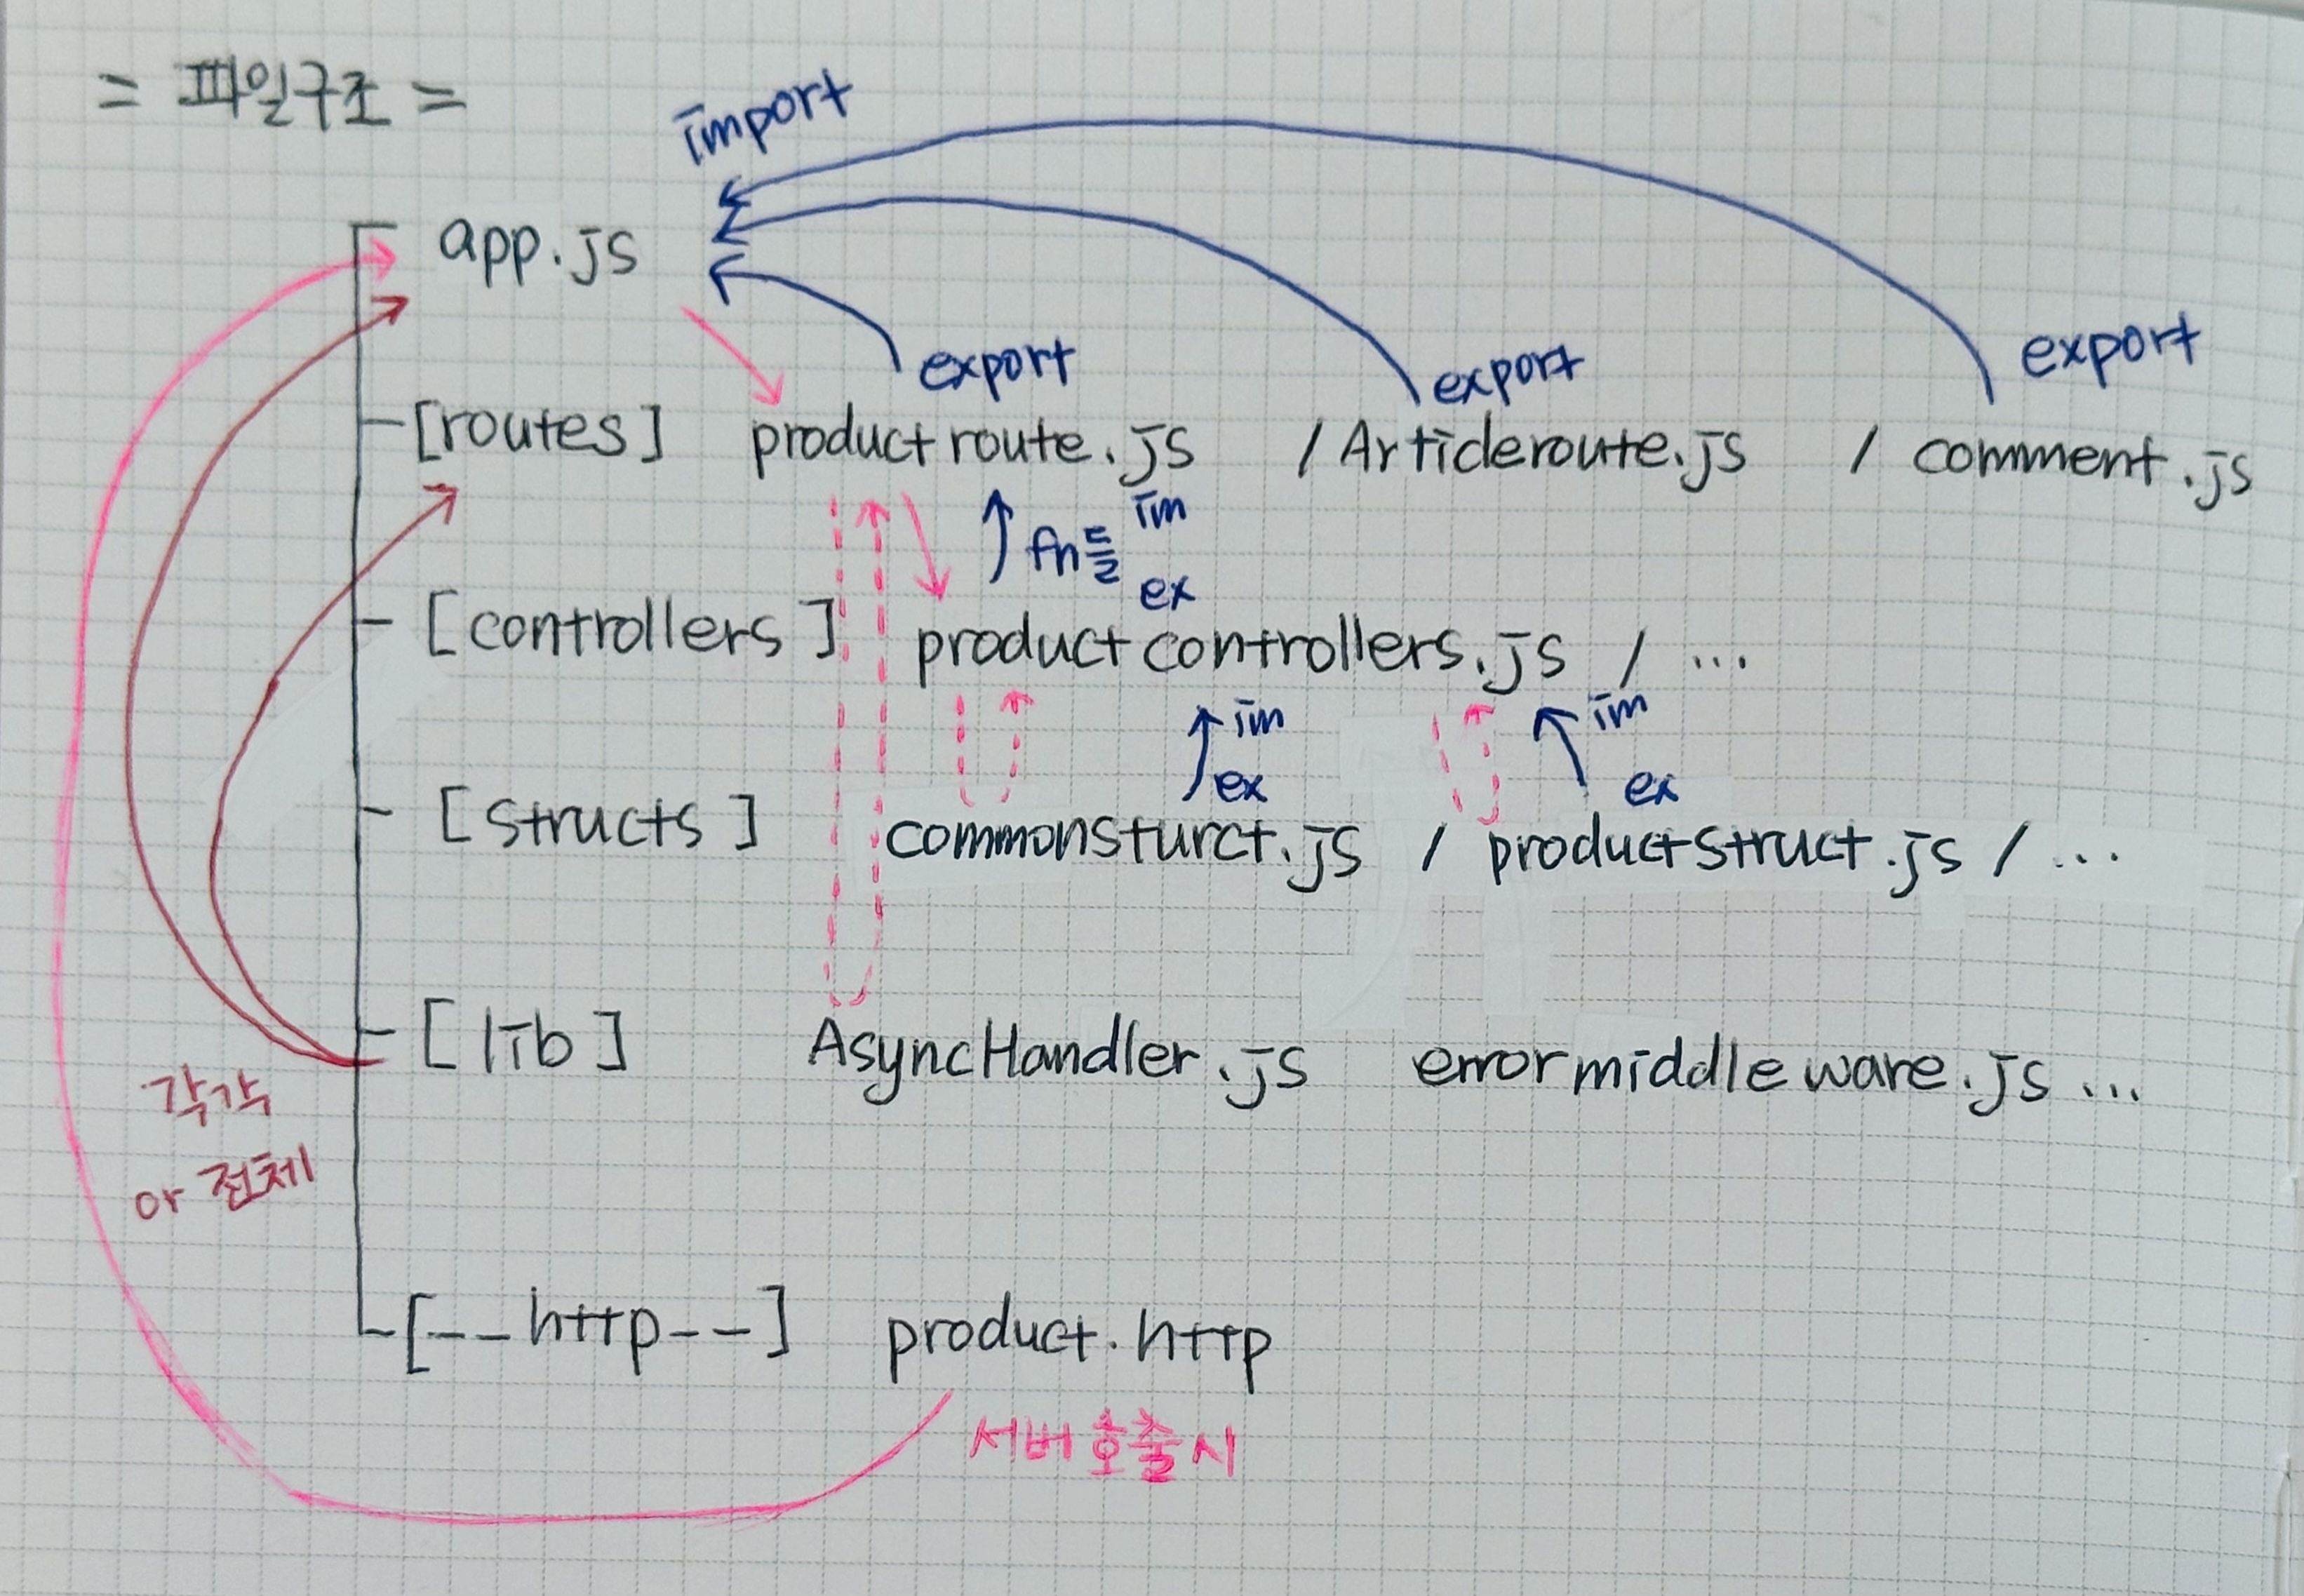 = 파일구조 =
import
app.js
export export export
-[routes] productroute.js / Articleroute.js / comment.js
fn들 im
ex
- [controllers] productcontrollers.js / ...
im im
ex ex
- [structs] commonsturct.js / productstruct.js / ...
- [lib] AsyncHandler.js errormiddleware.js ...
각각
or 전체
-[--http--] product.http
서버호출시